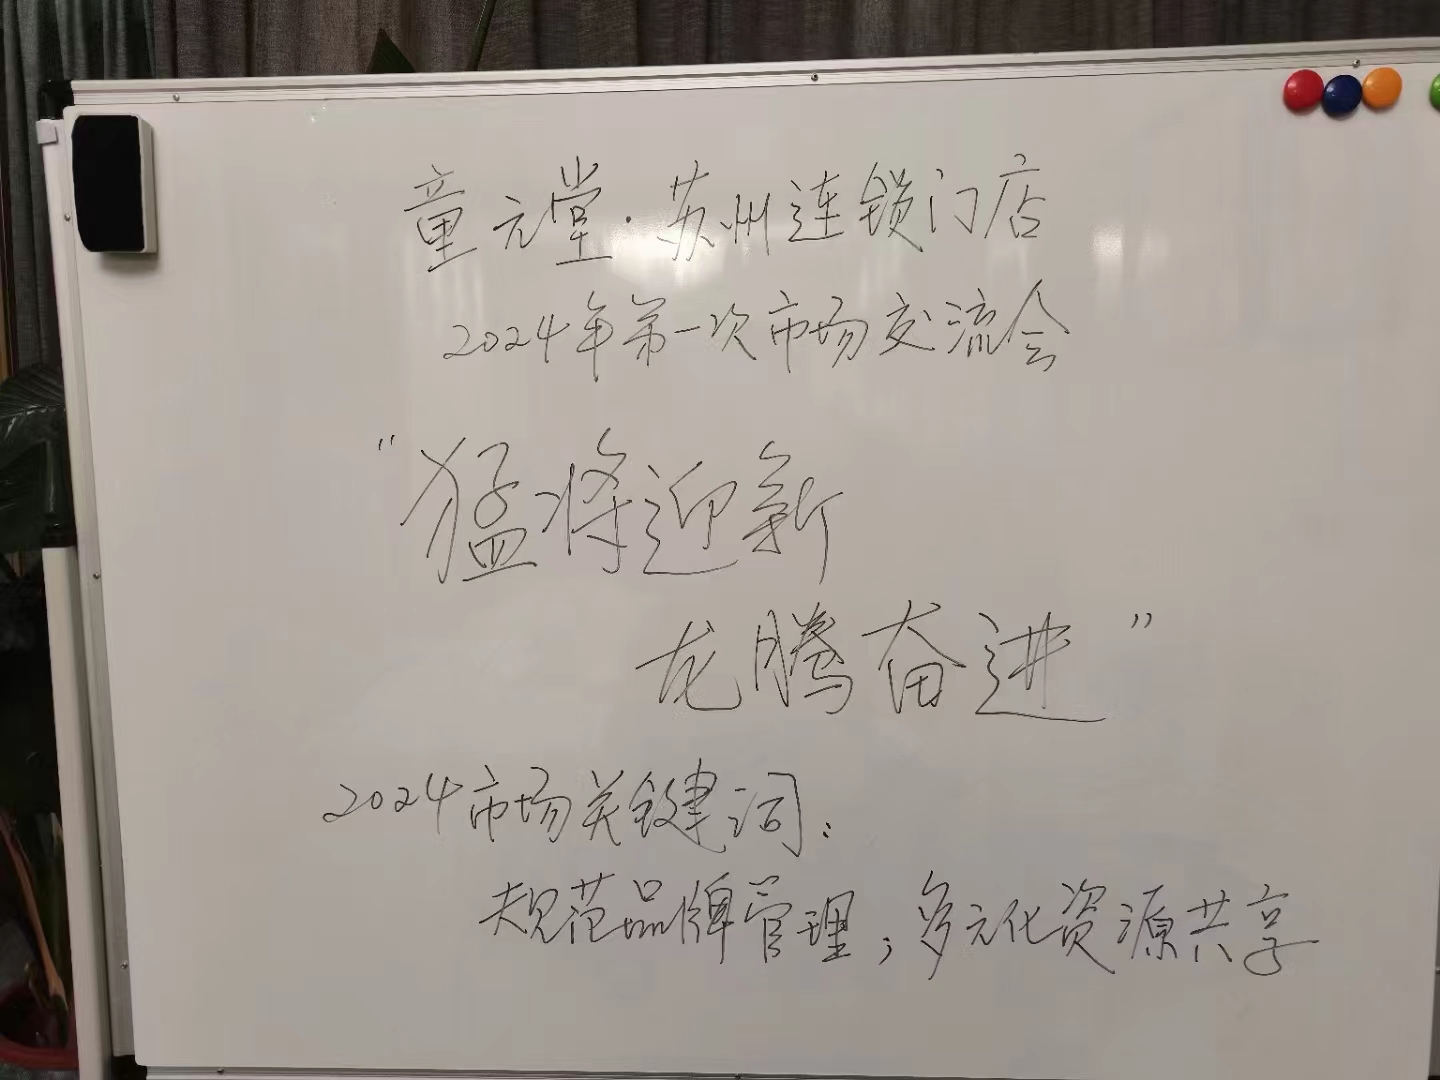 童元堂·苏州连锁门店
2024年第一次市场交流会
"猛将迎新
龙腾奋进"
2024市场关键词:
规范品牌管理;多元化资源共享